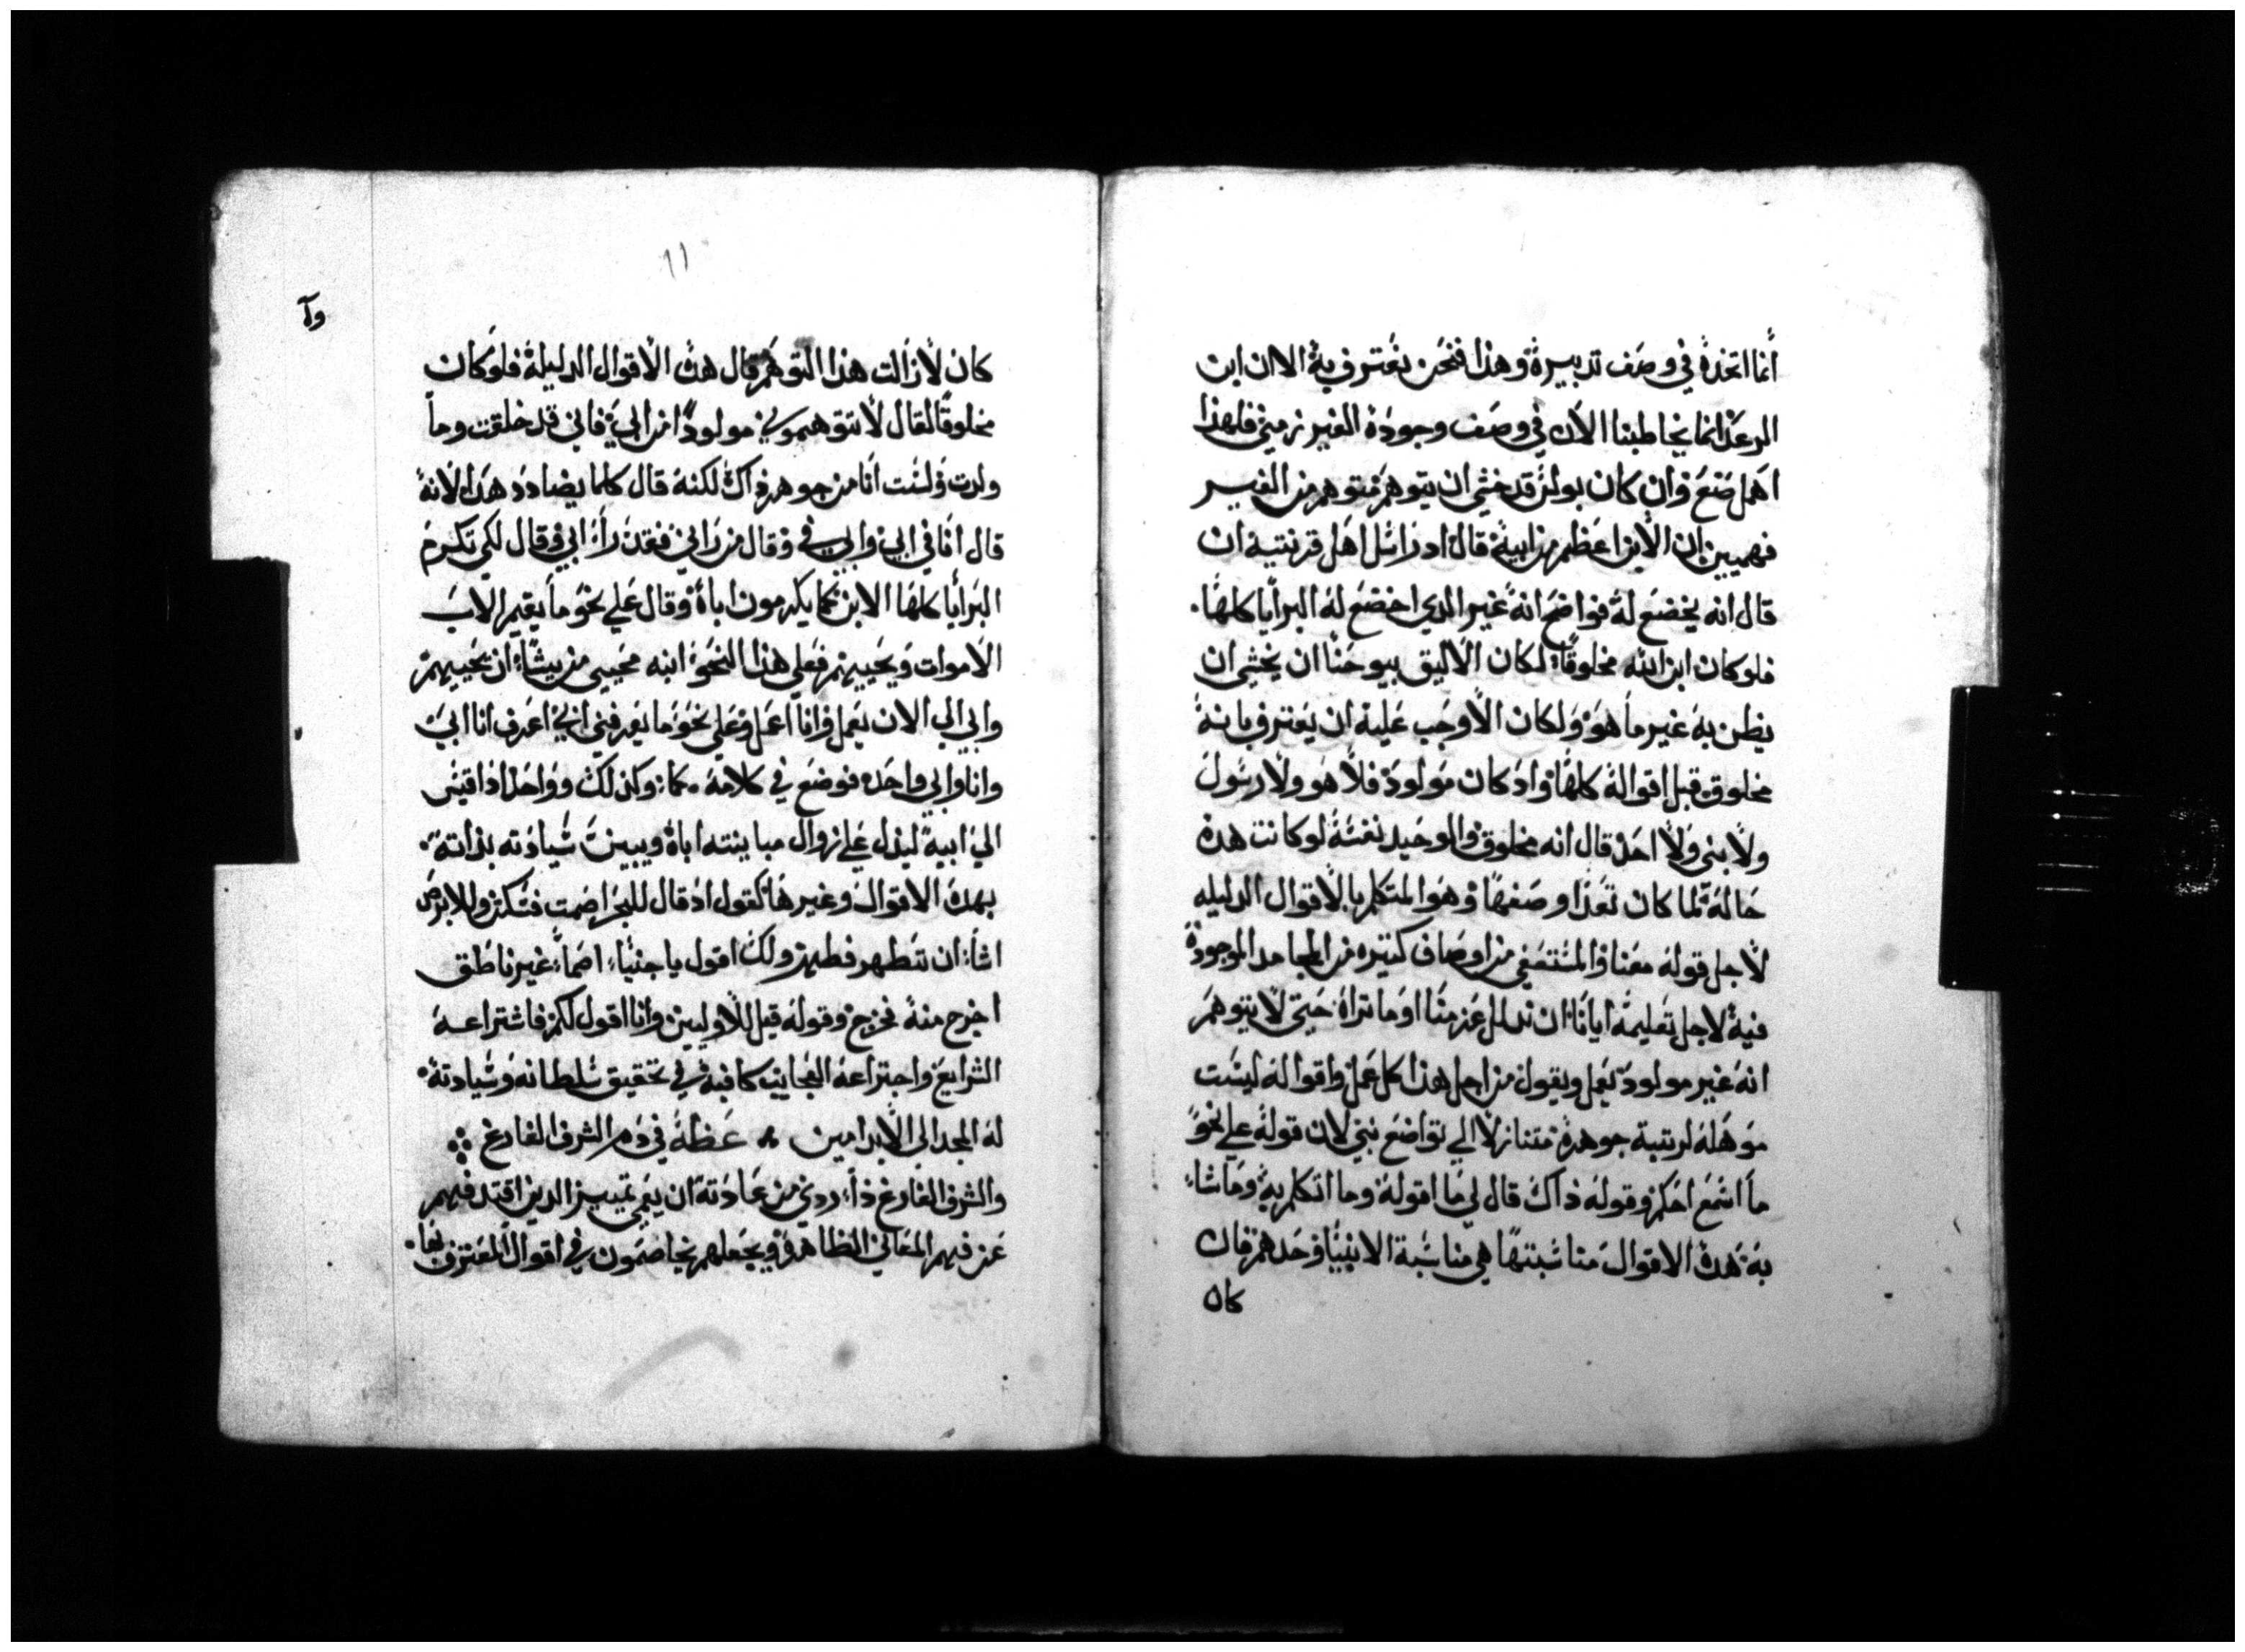 أنما اتخذه في وصف تدبيره وهذا فنحن نعترف به الا ان ابن
الرعد انما يخاطبنا الان في وصف وجوده الغير زمني فلهذا
اهمل ضع وان كان بولس قد خشي ان يتوهم متوهم من الغير
فهميين ان الابن اعظم من ابيه قال اذ راسل اهل قرنتيه ان
قال انه يخضع له فواضح انه غير الدي اخضع له البرايا كلها.
فلو كان ابن الله مخلوقا لكان الاليق بيوحنا ان يخشي ان
يظن به غير ما هو ولكان الاوجب عليه ان يعترف بانه
مخلوق قبل اقواله كلها واد كان مولود فلا هو ولا رسول
ولا بني ولا احد قال انه مخلوق والوحيد نفسه لو كانت هده
حاله لما كان تعدا وصفها وهو المتكلم بالاقوال الدليله
لاجل قوله معنا والمستعفي من اوصاف كتيره من المحامد الموجودة
فيه لاجل تعليمه ايانا ان ندلل عزمنا او ما تراه حتي لا يتوهم
انه غير مولود يعمل ويقول من اجل هذا كل عمل واقواله ليست
موهله لرتبة جوهره متنازلا الي تواضع نبي لان قوله علي نحو
ما اسمع احكم وقوله ذاك قال لي ما اقوله وما اتكلم به وما شا
به هده الاقوال مناسبتها هي مناسبة الانبيا وحدهم فان
كان
١١
وآ
كان لازالت هذا التوهم قال هده الاقوال الدليلة فلو كان
مخلوقا لقال لا تتوهموني مولودا من ابي فاني قد خلقت وما
ولدت ولست انا من جوهر ذاك لكنه قال كلما يضادد هدا لانه
قال انا في ابي وابي في وقال من راني فقد راء ابي وقال لكي تكرم
البرايا كلها الابن كما يكرمون اباه وقال علي نحو ما يقيم الاب
الاموات ويحييهم فعلي هذا النحو ابنه محيي من يشاء ان يحييهم
وابي الي الان يعمل وانا اعمل وعلي نحو ما يعرفني ابي اعرف انا ابي
وانا وابي واحد فوضع في كلامه . كما وكذلك وواحد اذا قيس
الي ابيه ليدل علي زوال مباينته اباه ويبين سيادته بذاته.
بهده الاقوال وغيرها كقول اذ قال للبحر اصمت فسكن وللابرص
اشاء ان تتطهر فطهر ولك اقول يا جنيا اصما غير ناطق
اخرج منه فخرج وقوله قيل للاوليين وانا اقول لكم فاشتراعه
الشرايع واجتراعه العجايب كافيه في تحقيق سلطانه وسيادته.
له المجد الي الابد امين ۞ عظة في دم الشرف الفارغ
والشرف الفارغ ذاء ردي من عادته ان يعمي تمييز الدين اقتد فيهم
عن فهم المعاني الظاهره ويجعلهم يخاصمون في اقوال المعترف بها.